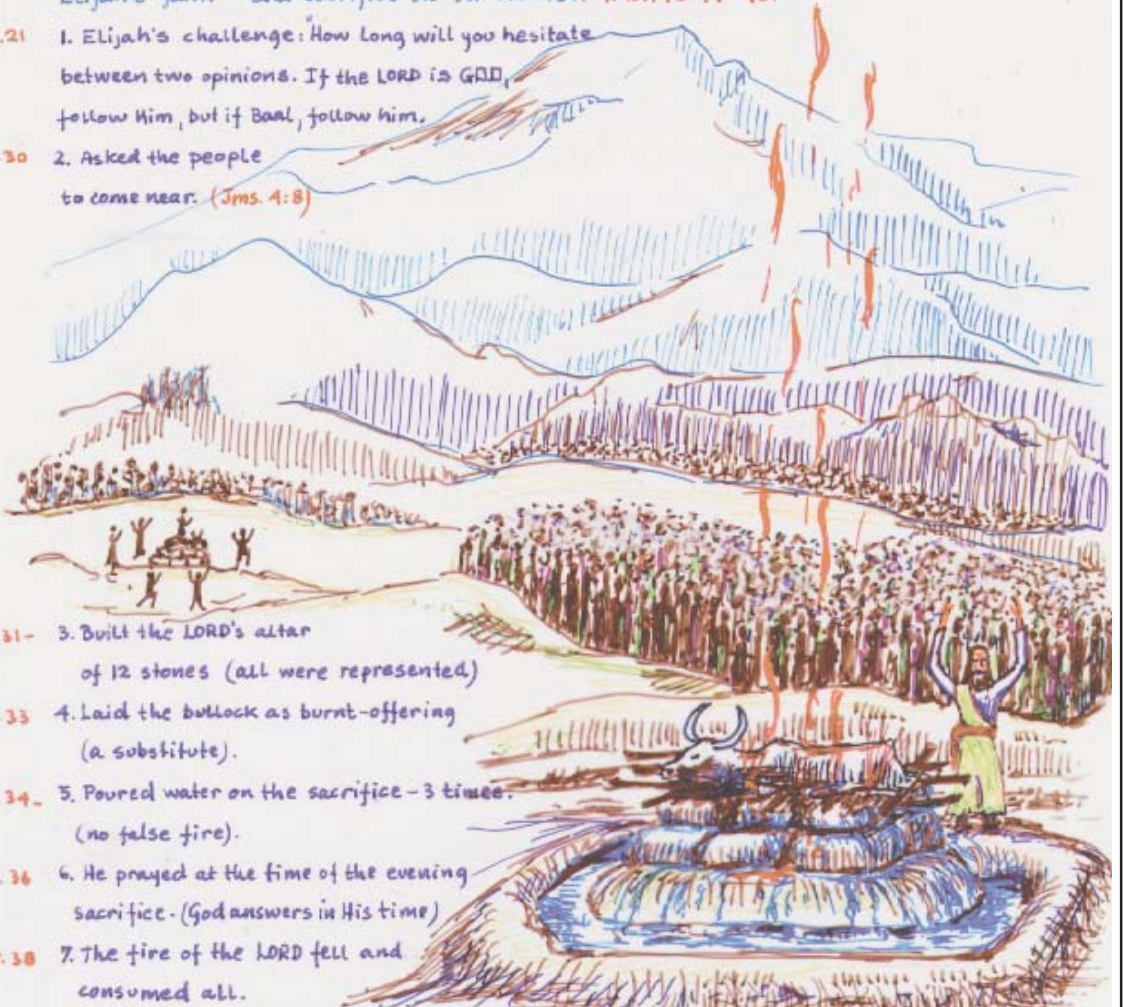 Elijah's faith and sacrifice
.21 1. Elijah's challenge: "How long will you hesitate
between two opinions. If the LORD is GOD,
follow Him, but if Baal, follow him.
30 2. Asked the people
to come near. (Jms. 4:8)
31- 3. Built the LORD's altar
of 12 stones (all were represented)
33 4. Laid the bullock as burnt-offering
(a substitute).
34- 5. Poured water on the sacrifice - 3 times.
(no false fire).
. 36 6. He prayed at the time of the evening
sacrifice - (God answers in His time)
. 38 7. The fire of the LORD fell and
consumed all.